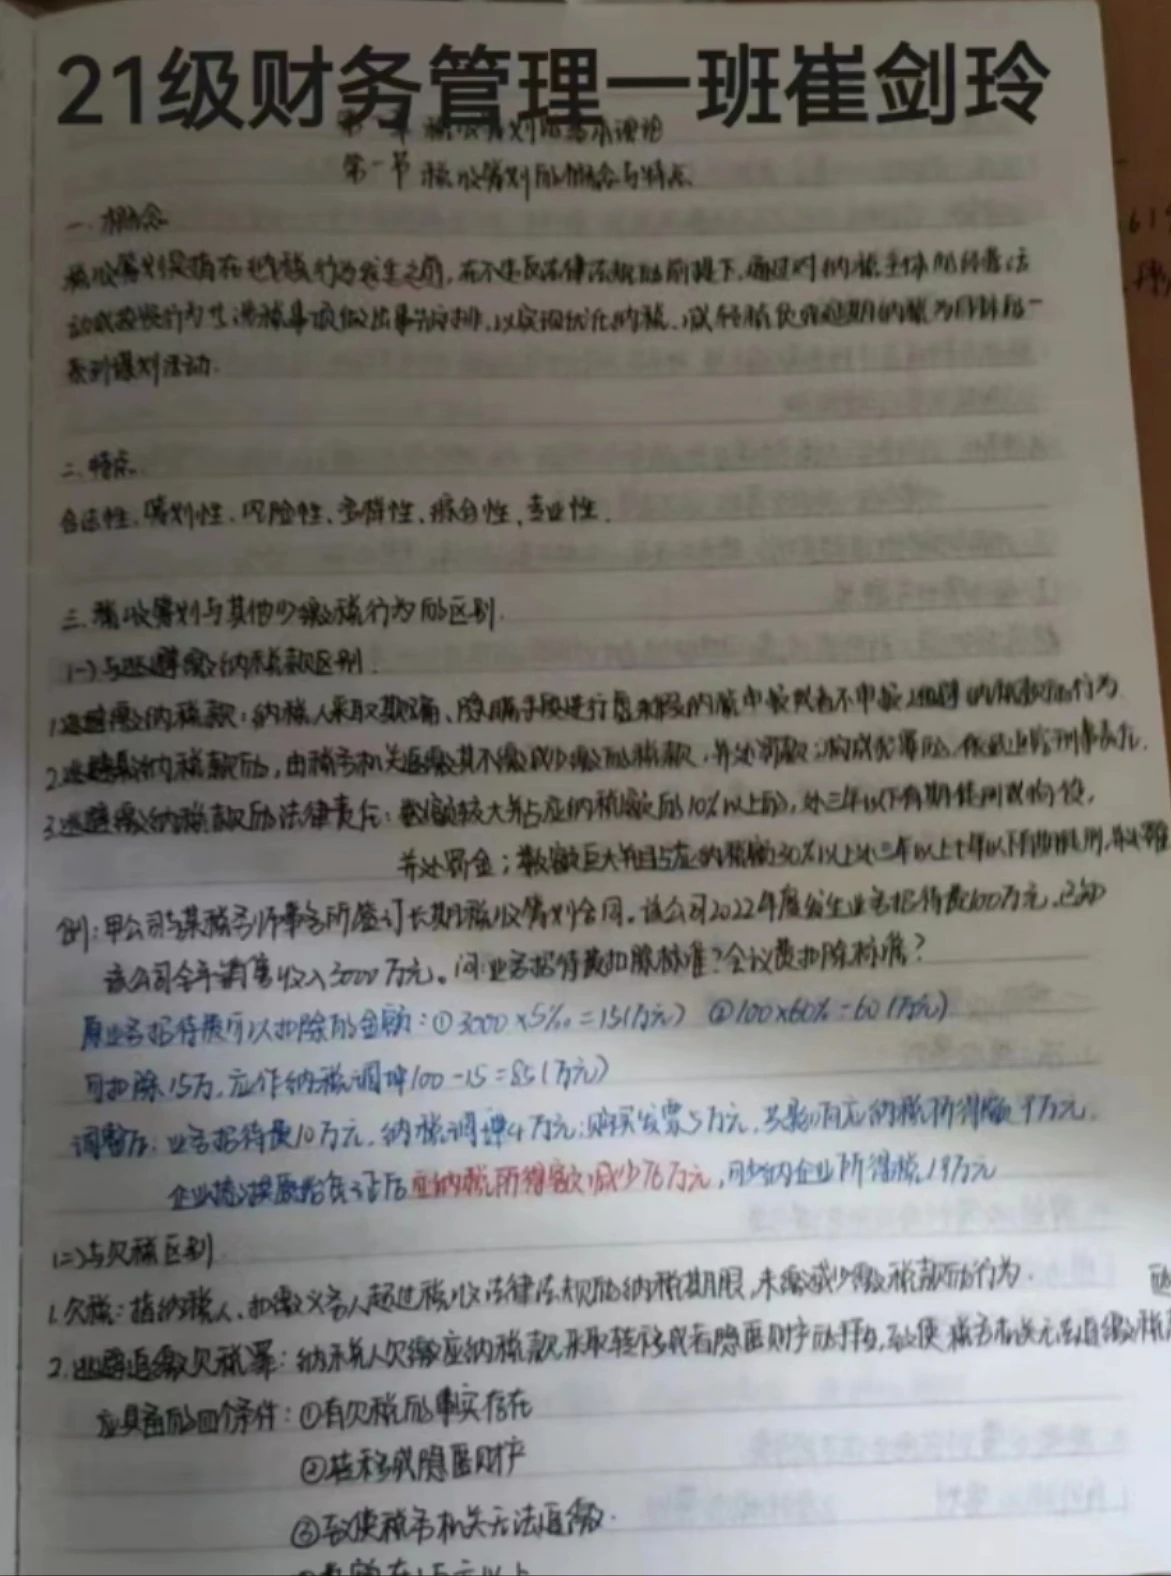 21级财务管理一班崔剑玲
第一章 税收筹划的基本理论
第一节 税收筹划的概念与特点
一.概念
税收筹划是指在纳税行为发生之前,在不违反法律法规的前提下,通过对纳税主体的经营活
动或投资行为等涉税事项做出事先安排,以实现优化纳税、减轻税负或延期纳税为目标的一
系列谋划活动.
二.特点
合法性、筹划性、风险性、多样性、综合性、专业性.
三.税收筹划与其他少缴税行为的区别.
(一)与逃避缴纳税款区别.
1.逃避缴纳税款:纳税人采取欺骗、隐瞒手段进行虚假纳税申报或者不申报,逃避缴纳税款的行为.
2.逃避缴纳税款的,由税务机关追缴其不缴或少缴的税款,并处罚款;构成犯罪的,依法追究刑事责任.
3.逃避缴纳税款的法律责任:数额较大并占应纳税额的10%以上的,处三年以下有期徒刑或拘役,
并处罚金;数额巨大并且占应纳税额30%以上处三年以上七年以下有期徒刑,并处罚
例:甲公司与某税务师事务所签订长期税收筹划合同。该公司2022年度发生业务招待费100万元.已知
该公司全年销售收入3000万元。问:业务招待费扣除标准?会议费扣除标准?
原业务招待费可以扣除的金额:①3000×5‰=15(万元) ②100×60%=60(万元)
可扣除15万,应作纳税调增100-15=85(万元)
调整后:业务招待费10万元,纳税调增4万元;购买发票5万元,共影响应纳税所得额9万元.
企业应纳税所得额减少76万元,可少纳企业所得税19万元
(二)与欠税区别
1.欠税:指纳税人、扣缴义务人超过税收法律法规的纳税期限,未缴或少缴税款的行为.
2.逃避追缴欠税罪:纳税人欠缴应纳税款,采取转移或者隐匿财产的手段,致使税务机关无法追缴税
应具备的四个条件:①有欠税的事实存在
②转移或隐匿财产
③致使税务机关无法追缴.